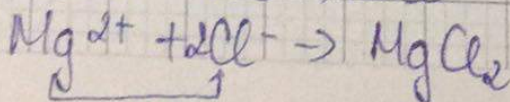 Mg²⁺ + 2Cl⁻ → MgCl₂